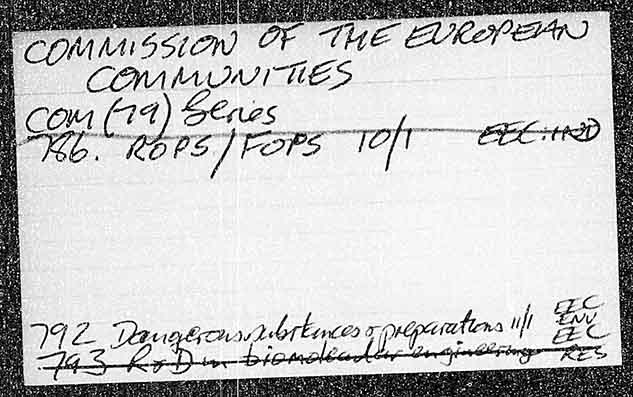 COMMISSION OF THE EUROPEAN
COMMUNITIES
COM (79) Series
786. ROPS/FOPS 10/1 EEC.IND
792 Dangerous substances & preparations 11/1 EEC ENV
793 R & D in biomolecular engineering EEC RES